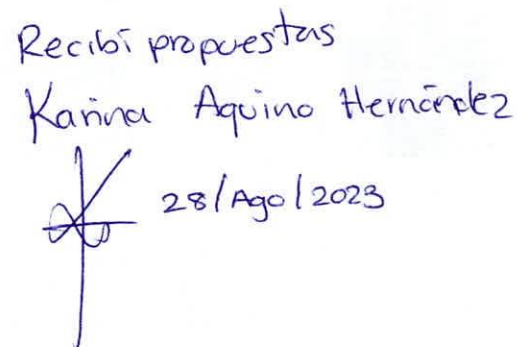 Recibí propuestas
Karina Aquino Hernández
28/Ago/2023